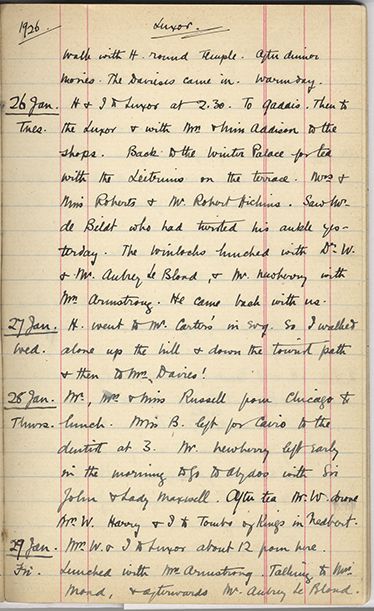 1926. Luxor.
walk with H. round Temple. After dinner
movies. The Davieses came in. Warm day.
26 Jan. H & I to Luxor at 2.30. To Gaddis. Then to
Tues. the Luxor & with Mrs & Miss Addison to the
shops. Back to the Winter Palace for tea
with the Leitrims on the terrace. Mrs &
Miss Roberts & Mr Robert Hichins. Saw Mr
de Bildt who had twisted his ankle yes-
terday. The Winlocks lunched with Dr. W.
& Mr. Aubrey Le Blond, & Mr. Newberry with
Mrs Armstrong. He came back with us.
27 Jan. H. went to Mr. Carter's in evg. So I walked
Wed. alone up the hill & down the tourist path
& then to Mrs Davies!
28 Jan. Mr, Mrs & Miss Russell from Chicago to
Thurs. lunch. Miss B. left for Cairo to the
dentist at 3. Mr. Newberry left early
in the morning to go to Abydos with Sir
John & Lady Maxwell. After tea Mr. W. drove
Mrs W. Harry & I to Tombs of Kings in
29 Jan. Mrs W. & I to Luxor about 12 from here.
Fri. Lunched with Mrs Armstrong. Talking to Mrs
Mond, & afterwards Mr. Aubrey Le Blond.